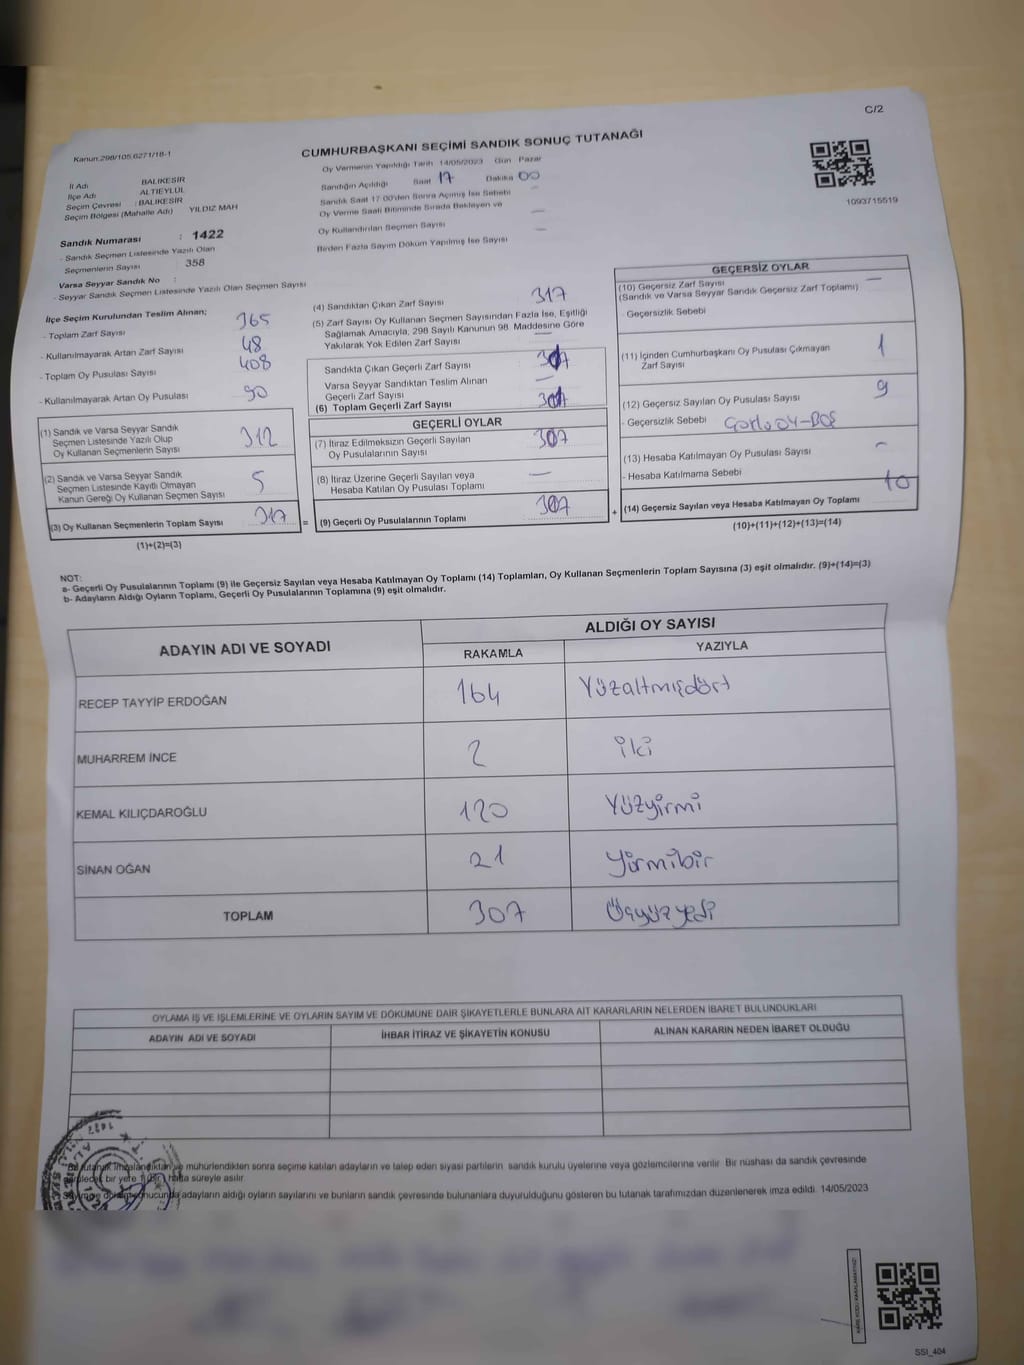 C/2
Kanun:298/105,6271/18-1
CUMHURBAŞKANI SEÇİMİ SANDIK SONUÇ TUTANAĞI
İl Adı BALIKESİR
İlçe Adı ALTIEYLÜL
Seçim Çevresi : BALIKESİR
Seçim Bölgesi (Mahalle Adı) YILDIZ MAH
Sandık Numarası : 1422
- Sandık Seçmen Listesinde Yazılı Olan
Seçmenlerin Sayısı 358
Varsa Seyyar Sandık No :
- Seyyar Sandık Seçmen Listesinde Yazılı Olan Seçmen Sayısı
Oy Vermenin Yapıldığı Tarih 14/05/2023 Gün Pazar
Sandığın Açıldığı Saat 17 Dakika 00
Sandık Saat 17:00'den Sonra Açılmış İse Sebebi
Oy Verme Saati Bitiminde Sırada Bekleyen ve
Oy Kullandırılan Seçmen Sayısı —
Birden Fazla Sayım Döküm Yapılmış İse Sayısı —
1093715519
İlçe Seçim Kurulundan Teslim Alınan;
- Toplam Zarf Sayısı 365
- Kullanılmayarak Artan Zarf Sayısı 48
- Toplam Oy Pusulası Sayısı 408
- Kullanılmayarak Artan Oy Pusulası 90
(1) Sandık ve Varsa Seyyar Sandık
Seçmen Listesinde Yazılı Olup
Oy Kullanan Seçmenlerin Sayısı 312
(2) Sandık ve Varsa Seyyar Sandık
Seçmen Listesinde Kayıtlı Olmayan
Kanun Gereği Oy Kullanan Seçmen Sayısı 5
(3) Oy Kullanan Seçmenlerin Toplam Sayısı 317
(1)+(2)=(3)
(4) Sandıktan Çıkan Zarf Sayısı 317
(5) Zarf Sayısı Oy Kullanan Seçmen Sayısından Fazla İse, Eşitliği
Sağlamak Amacıyla, 298 Sayılı Kanunun 98. Maddesine Göre
Yakılarak Yok Edilen Zarf Sayısı —
Sandıkta Çıkan Geçerli Zarf Sayısı
Varsa Seyyar Sandıktan Teslim Alınan
Geçerli Zarf Sayısı —
(6) Toplam Geçerli Zarf Sayısı
GEÇERLİ OYLAR
(7) İtiraz Edilmeksizin Geçerli Sayılan
Oy Pusulalarının Sayısı 307
(8) İtiraz Üzerine Geçerli Sayılan veya
Hesaba Katılan Oy Pusulası Toplamı —
= (9) Geçerli Oy Pusulalarının Toplamı 307
GEÇERSİZ OYLAR
(10) Geçersiz Zarf Sayısı —
(Sandık ve Varsa Seyyar Sandık Geçersiz Zarf Toplamı)
- Geçersizlik Sebebi
(11) İçinden Cumhurbaşkanı Oy Pusulası Çıkmayan
Zarf Sayısı 1
(12) Geçersiz Sayılan Oy Pusulası Sayısı 9
- Geçersizlik Sebebi
(13) Hesaba Katılmayan Oy Pusulası Sayısı —
- Hesaba Katılmama Sebebi
+ (14) Geçersiz Sayılan veya Hesaba Katılmayan Oy Toplamı 10
(10)+(11)+(12)+(13)=(14)
NOT:
a- Geçerli Oy Pusulalarının Toplamı (9) ile Geçersiz Sayılan veya Hesaba Katılmayan Oy Toplamı (14) Toplamları, Oy Kullanan Seçmenlerin Toplam Sayısına (3) eşit olmalıdır. (9)+(14)=(3)
b- Adayların Aldığı Oyların Toplamı, Geçerli Oy Pusulalarının Toplamına (9) eşit olmalıdır.
ADAYIN ADI VE SOYADI
ALDIĞI OY SAYISI
RAKAMLA YAZIYLA
RECEP TAYYİP ERDOĞAN 164 Yüzaltmışdört
MUHARREM İNCE 2 iki
KEMAL KILIÇDAROĞLU 120 Yüzyirmi
SİNAN OĞAN 21 yirmibir
TOPLAM 307 Üçyüzyedi
OYLAMA İŞ VE İŞLEMLERİNE VE OYLARIN SAYIM VE DÖKÜMÜNE DAİR ŞİKAYETLERLE BUNLARA AİT KARARLARIN NELERDEN İBARET BULUNDUKLARI
ADAYIN ADI VE SOYADI İHBAR İTİRAZ VE ŞİKAYETİN KONUSU ALINAN KARARIN NEDEN İBARET OLDUĞU
Bu tutanak imzalandıktan ve mühürlendikten sonra seçime katılan adayların ve talep eden siyasi partilerin sandık kurulu üyelerine veya gözlemcilerine verilir. Bir nüshası da sandık çevresinde
bir yere 1 (Bir) hafta süreyle asılır.
adayların aldığı oyların sayılarını ve bunların sandık çevresinde bulunanlara duyurulduğunu gösteren bu tutanak tarafımızdan düzenlenerek imza edildi. 14/05/2023
SSI_404